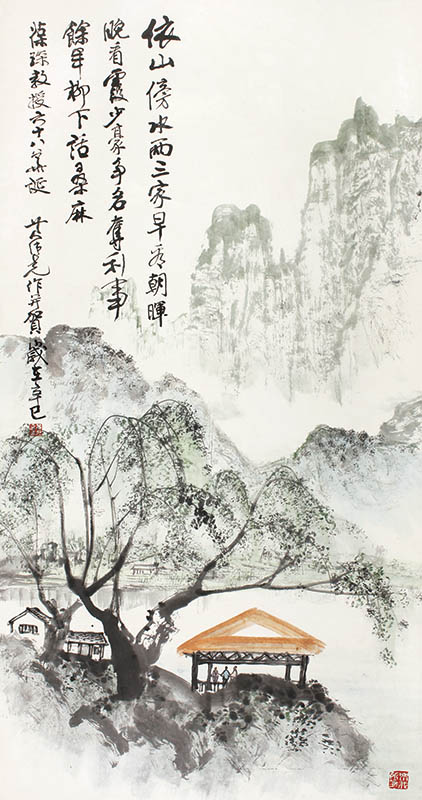 依山傍水兩三家早看朝暉
晚看霞少爭名奪利事
餘年柳下話桑麻
琛教授六十八華誕 作并賀 歲在辛巳